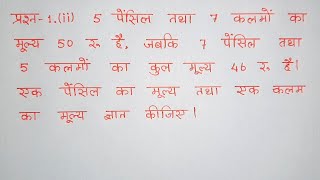 प्रश्न-1.(ii) 5 पेंसिल तथा 7 कलमों का
मूल्य 50 रु है, जबकि 7 पेंसिल तथा
5 कलमों का कुल मूल्य 46 रु है।
एक पेंसिल का मूल्य तथा एक कलम
का मूल्य ज्ञात कीजिए।